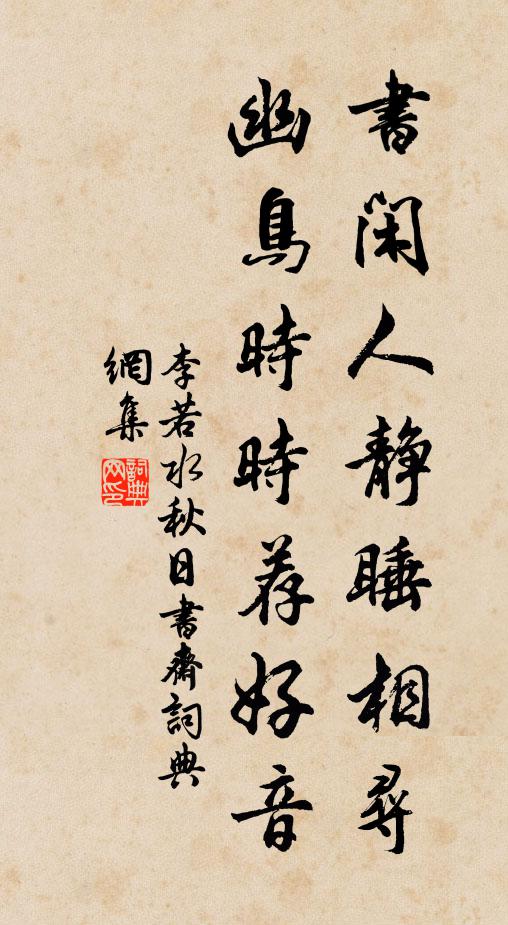 書閑人静睡相尋
幽鳥時時荐好音
李若水秋日書齋詞典
網集
詞典网印